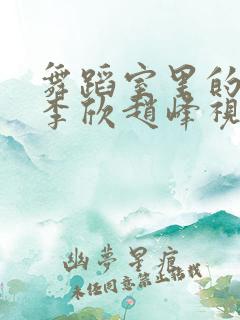 舞蹈室里的
李欣趙峰視
幽夢星痕
未经同意禁止转载